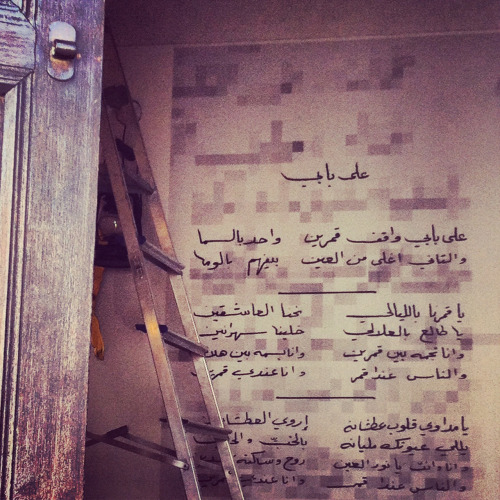 على بابي
على بابي واقف قمرين واحد بالسما
والتاني اغلى من العين بيفهم بالوما
يا قمرنا بالليالي نحنا العاشقين
يا طالع بالعلالي خلينا سهرانين
وانا نجمه بين قمرين وانا نسمه بين
والناس عندا قمر وانا عندي قمرين
يا مداوي قلوب عطشانه إروي العطشان
يللي عيونك مليانه بالحب
وانا وانت يا نور العين روح وساكنه
والناس عندا قمر وانا عندي